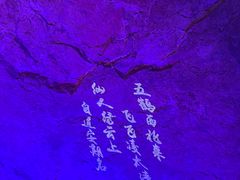 五鹤西北来
飞飞凌太清
仙人绿云上
自道安期名